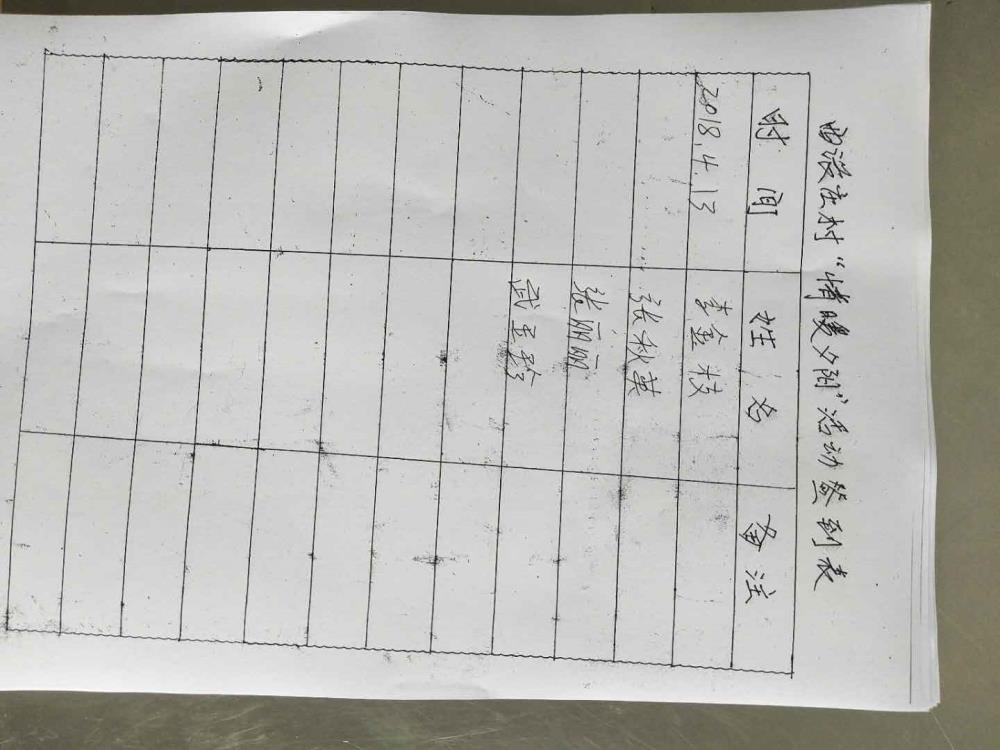 西漫庄村“情暖夕阳”活动签到表
时间 姓名 备注
2018.4.13 李金枝
张秋英
张丽丽
武玉